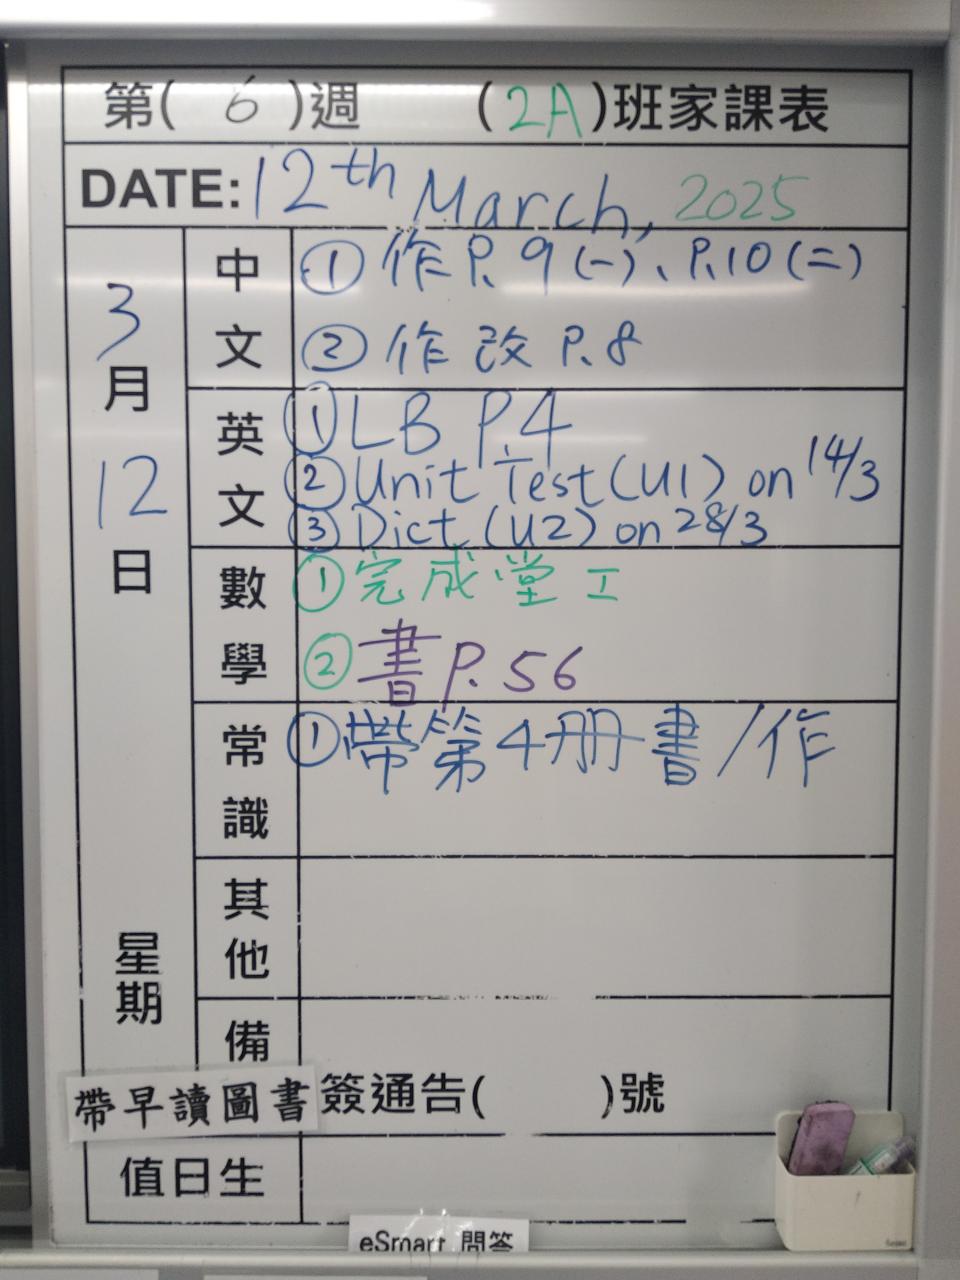 第( 6 )週 (2A)班家課表
DATE: 12th March, 2025
3月12日
星期
中文
① 作 P.9 (一)、P.10 (二)
② 作 改 P.8
英文
① LB P.4
② Unit Test (U1) on 14/3
③ Dict. (U2) on 28/3
數學
① 完成堂工
② 書 P.56
常識
① 帶第4冊書/作
其他
備
簽通告( )號
帶早讀圖書
值日生
eSmart 問答